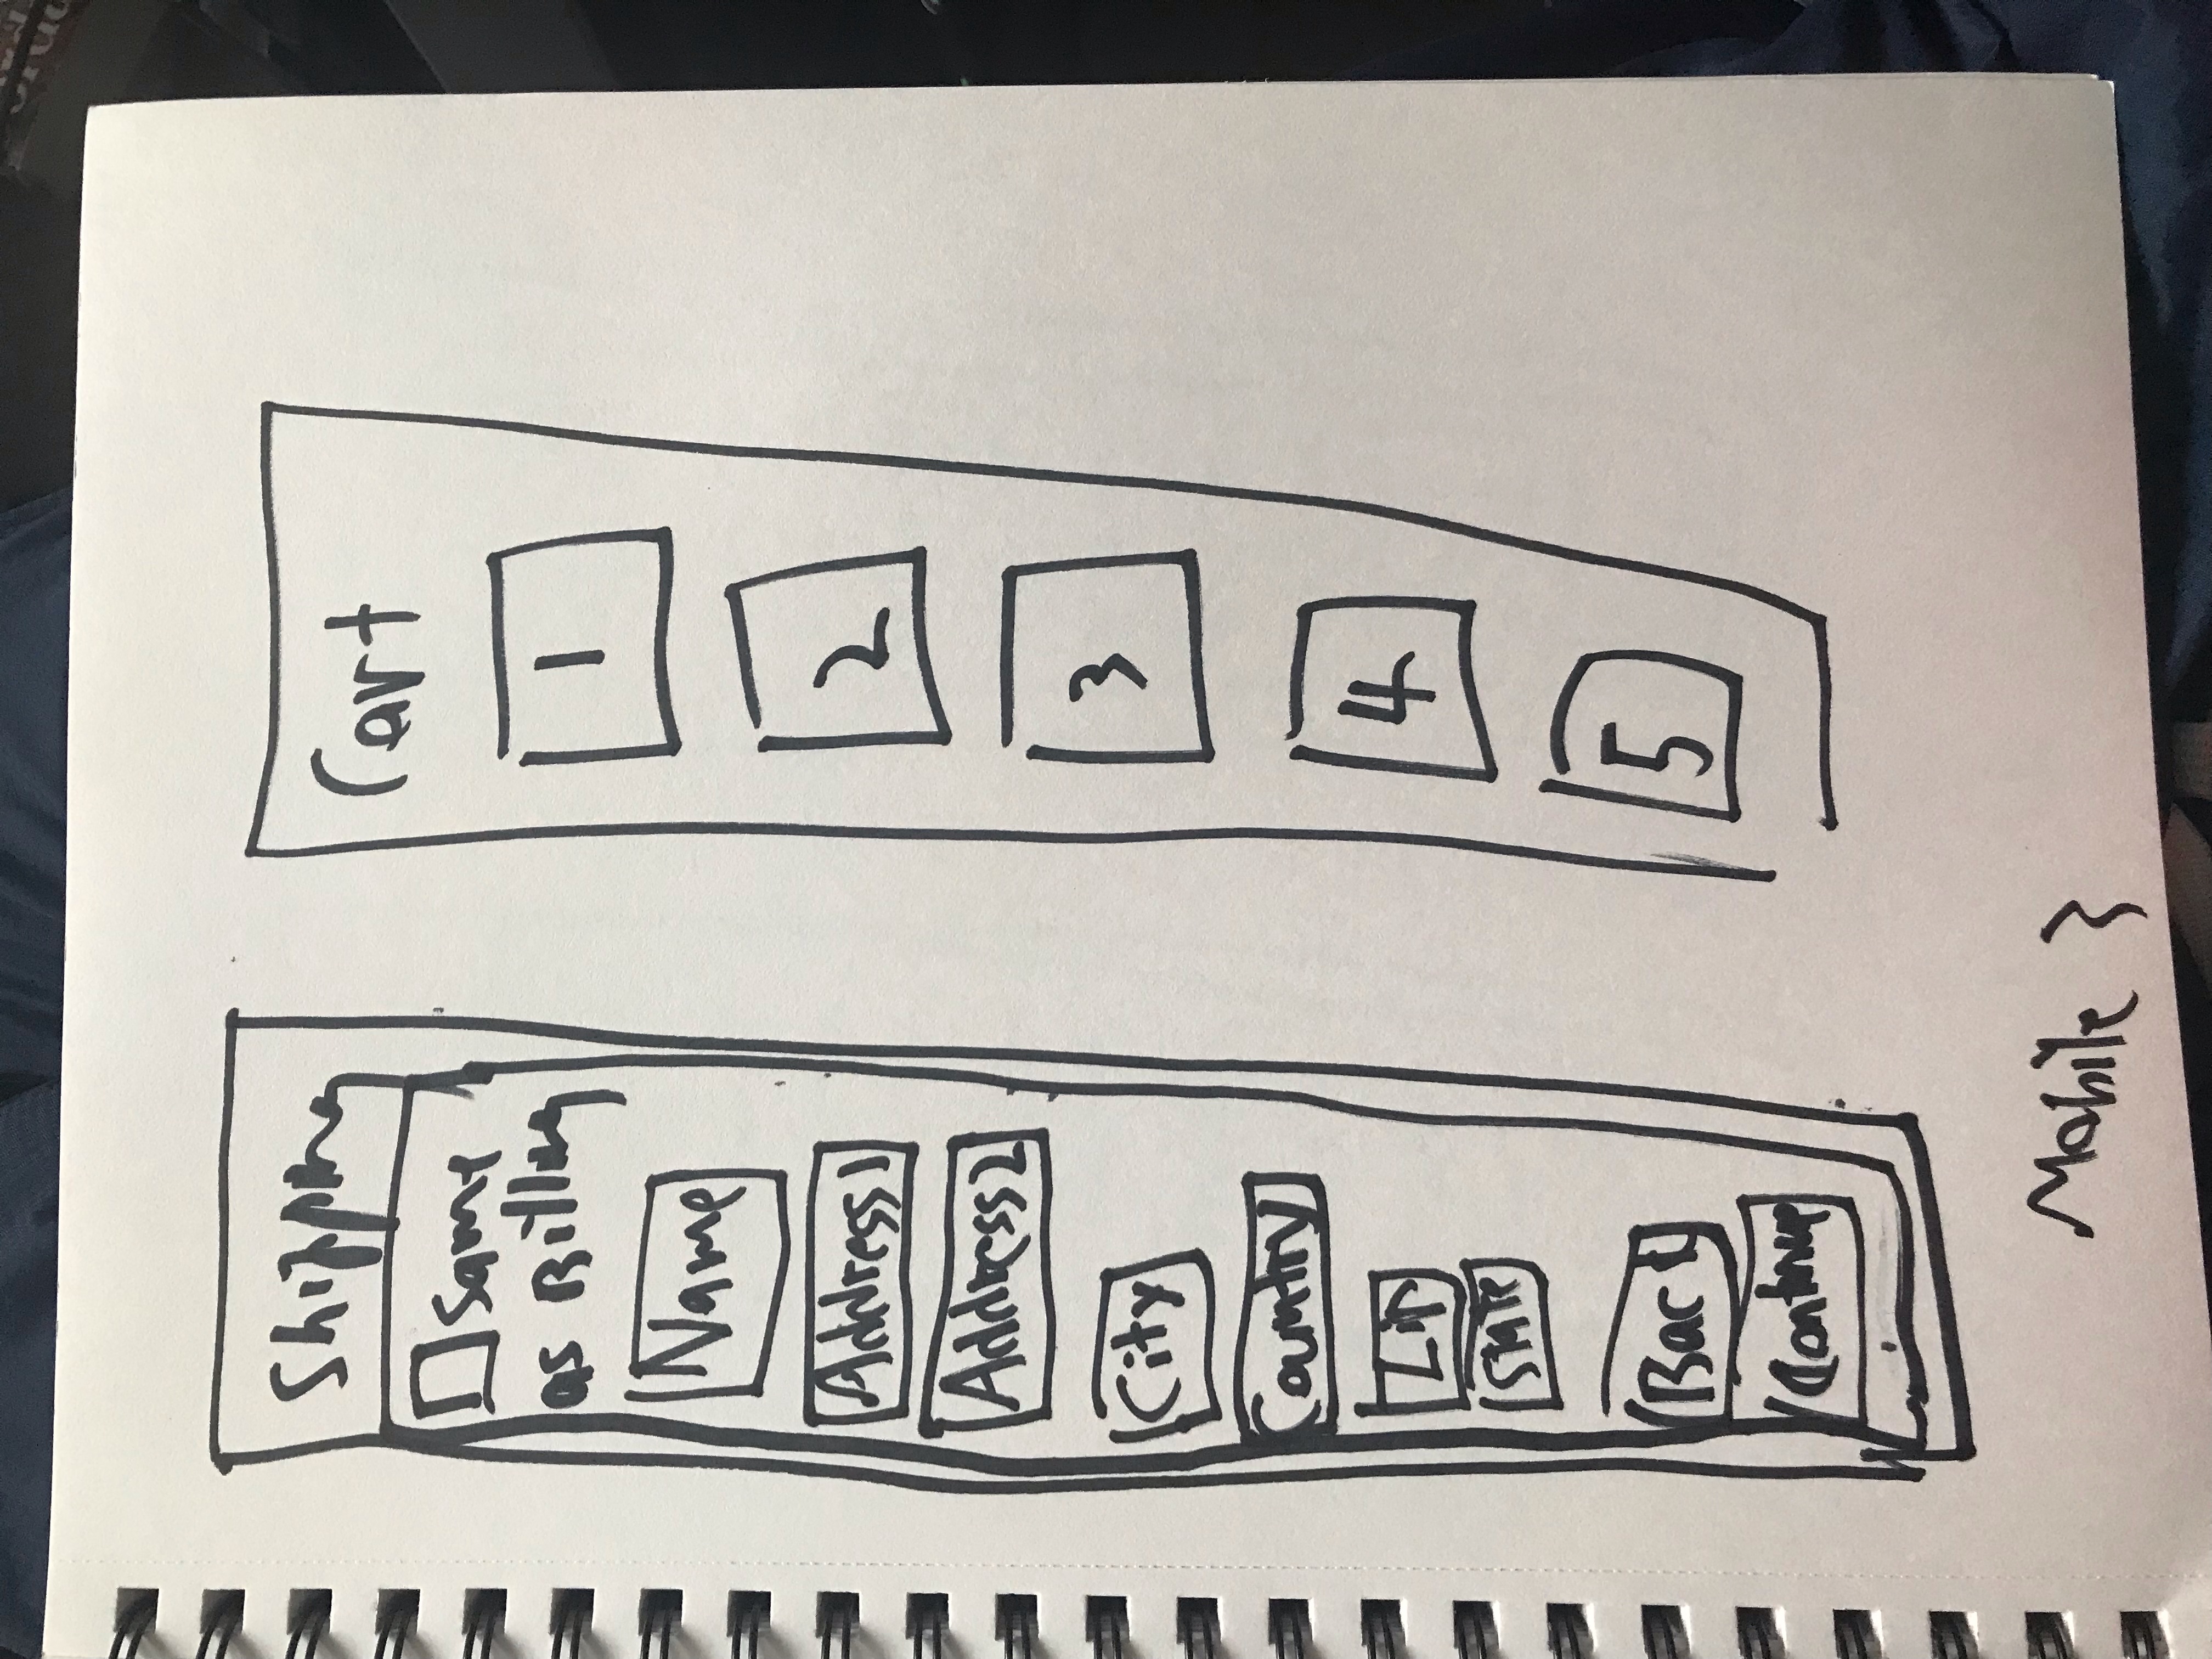 Shipping
Same
as Billing
Name
Address1
Address2
City
Country
Zip
State
Back
Continue
Cart
1
2
3
4
5
Mobile 3